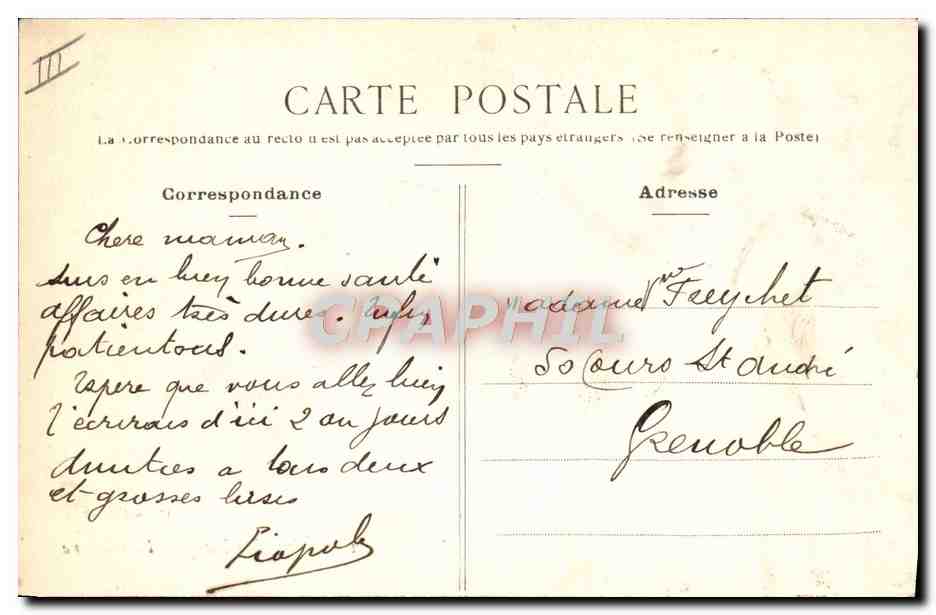 III
CARTE POSTALE
La Correspondance au recto n'est pas acceptée par tous les pays étrangers (Se renseigner à la Poste)
Correspondance
Chere maman.
suis en bien bonne santé
affaires très dures. enfin
patientons.
espere que vous allez bien
j'ecrirais d'ici 2 ou jours
a tous deux
et grosses bises
Adresse
Madame
50 Cours St André
Grenoble
CPAPHIL